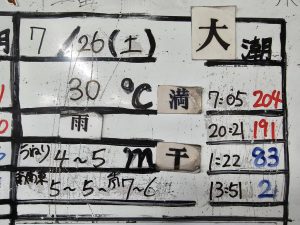 7/26(土) 大潮
30℃ 満 7:05 204
雨 20:21 191
うねり 4~5m 干 1:22 83
5~5~ 7~6 13:51 2